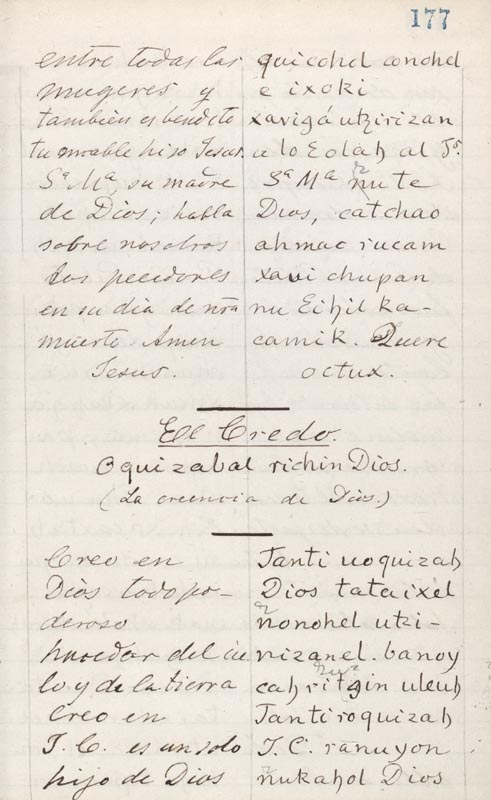 177
entre todas las quicohol conohel
mugeres y e ixoki
tambien es bendito xavigá utzirizan
tu amable hijo Jesus. a lo Eolah al Js.
Sª Mª, su madre Sª Mª nute
de Dios; habla Dios, catchao
sobre nosotros ahmac rucam
los pecedores xavi chupan
en su dia de nra nu Eihil ka-
muerte Amen camik. Quere
Jesus. octux.
El Credo.
Oquizabal richin Dios.
(La creencia de Dios.)
Creo en Tanti uoquizah
Dios todopo- Dios tataixel
deroso nonohel utzi-
hacedor del cie nizanel. banoy
lo y de la tierra cah ri gin uleuh
Creo en Tantiroquizah
J. C. es un solo J. C. ranuyon
hijo de Dios nukahol Dios